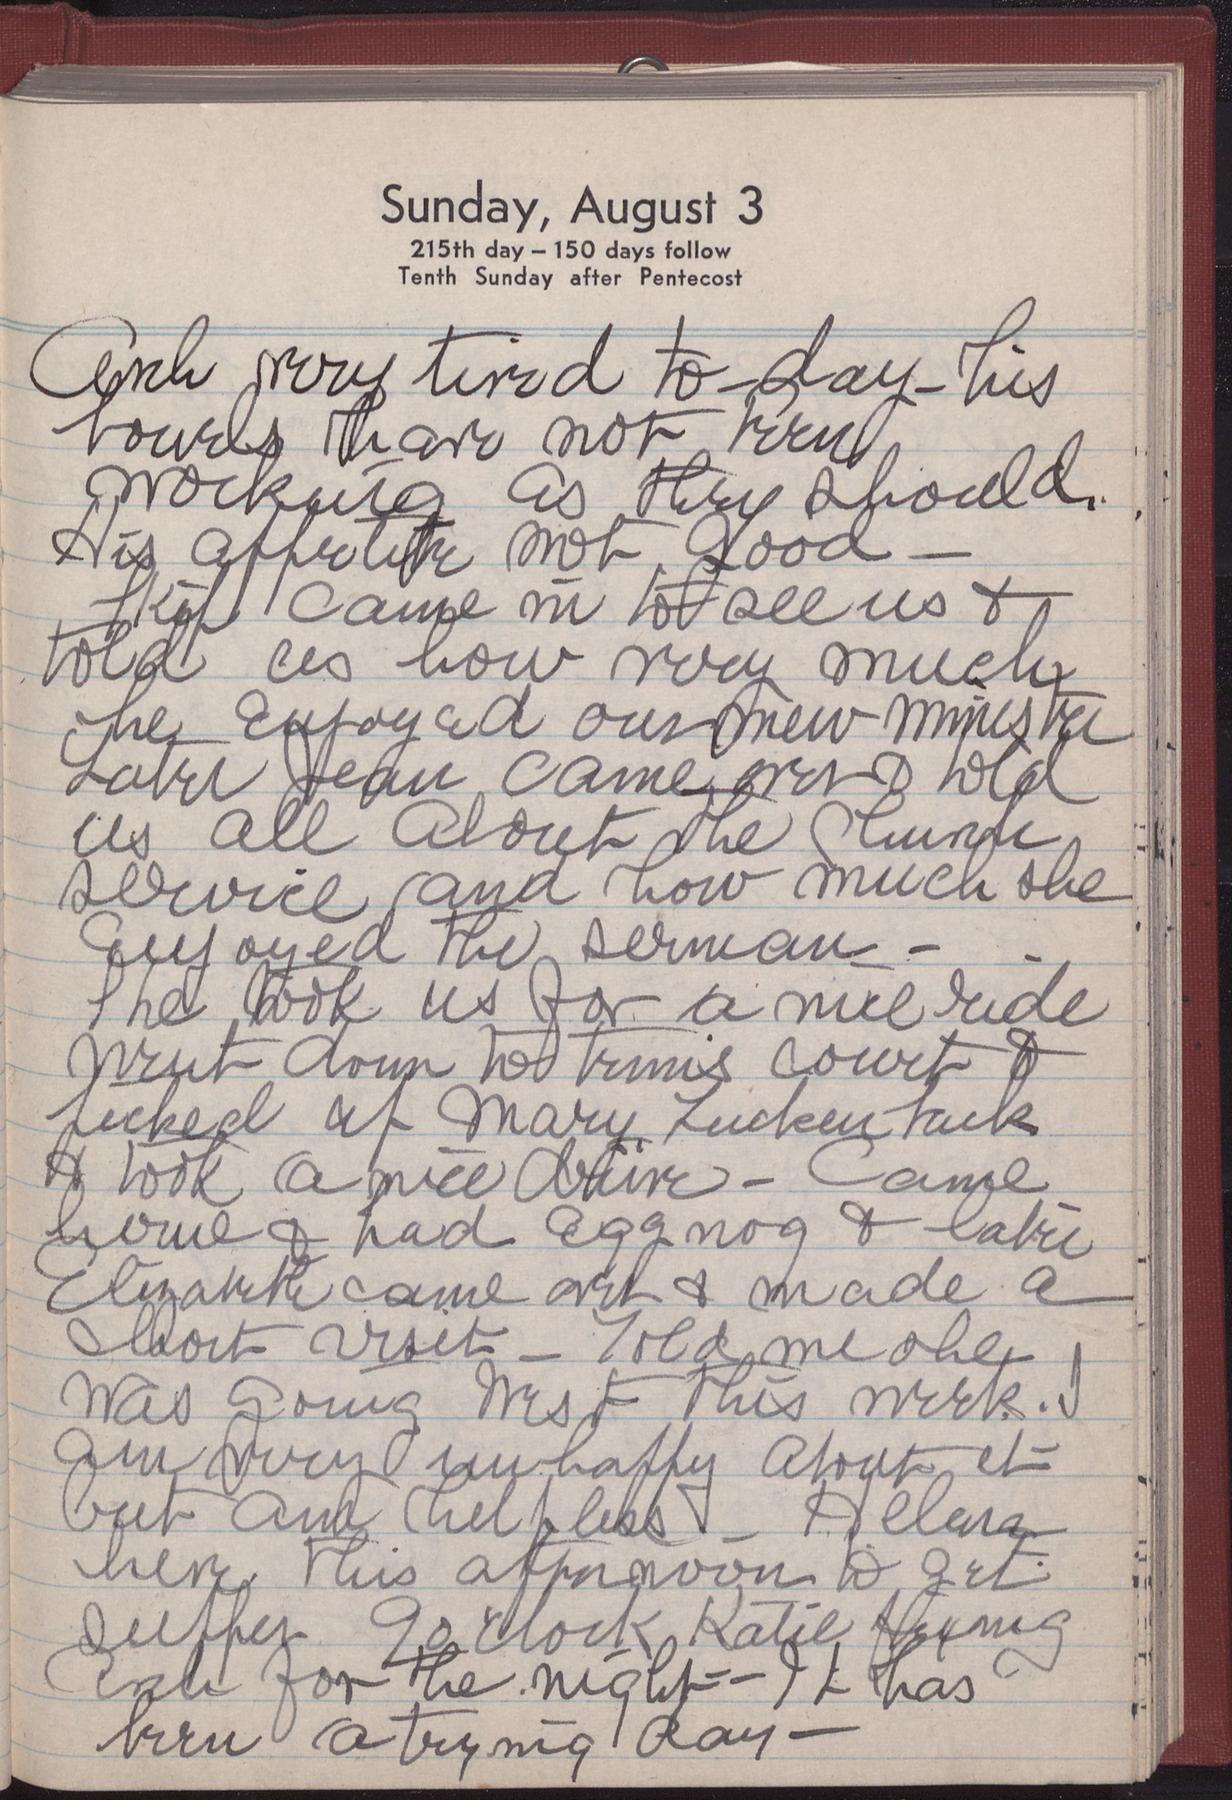 Sunday, August 3
215th day – 150 days follow
Tenth Sunday after Pentecost
very tired to-day – his
bowels have not been
working as they should.
His appetite not good –
Skip came in to see us &
told us how very much
he enjoyed our new minister
Later Jean came over & told
us all about the Church
service and how much she
enjoyed the serman –
She took us for a nice ride
went down to tennis court &
picked up Mary
& took a nice drive – Came
home & had eggnog & later
Elizabeth came over & made a
short visit – Told me she
was going West this week. I
am very unhappy about it
but am helpless –
here this afternoon to get
supper 9 o'clock Katie
for the night – It has
been a trying day –